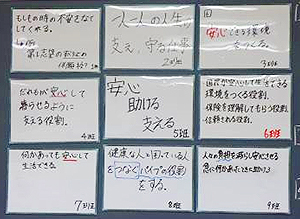 もしもの時の不安をなく
してくれる。
一人一人の人生
支え、守る仕事
2班
安心できる環境
をつくる。
3班
だれもが安心して
暮らせるように
支える役割。
4班
安心
助ける
支える
5班
国民が安心して生活できる
環境をつくる役割。
保険を理解してもらう役割。
信頼される役割。
6班
何があっても安心して
生活できる。
7班
健康な人と困っている人
をつなぐパイプの役割
をする。
8班
人々の負担を減らし安心させる
急に何かあったときに助ける
9班